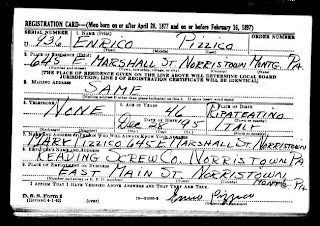 REGISTRATION CARD—(Men born on or after April 28, 1877 and on or before February 16, 1897)
SERIAL NUMBER 1. NAME (Print) ORDER NUMBER
U 936 ENRICO PIZZICO
2. PLACE OF RESIDENCE (Print)
645 E. MARSHALL ST. NORRISTOWN MONTG. PA.
[THE PLACE OF RESIDENCE GIVEN ON THE LINE ABOVE WILL DETERMINE LOCAL BOARD
JURISDICTION; LINE 2 OF REGISTRATION CERTIFICATE WILL BE IDENTICAL]
3. MAILING ADDRESS
SAME
4. TELEPHONE 5. AGE IN YEARS 6. PLACE OF BIRTH
NONE 46 RIPATEATINO
DATE OF BIRTH
Dec ITALY
7. NAME AND ADDRESS OF PERSON WHO WILL ALWAYS KNOW YOUR ADDRESS
MARY PIZZICO 645 E MARSHALL ST. NORRISTOWN
8. EMPLOYER'S NAME AND ADDRESS
READING SCREW CO. NORRISTOWN PA
9. PLACE OF EMPLOYMENT OR BUSINESS
EAST MAIN ST. NORRISTOWN
MONTG. PA.
I AFFIRM THAT I HAVE VERIFIED ABOVE ANSWERS AND THAT THEY ARE TRUE.
D. S. S. Form 1
(Revised 4-1-42) (over) Enrico Pizzico